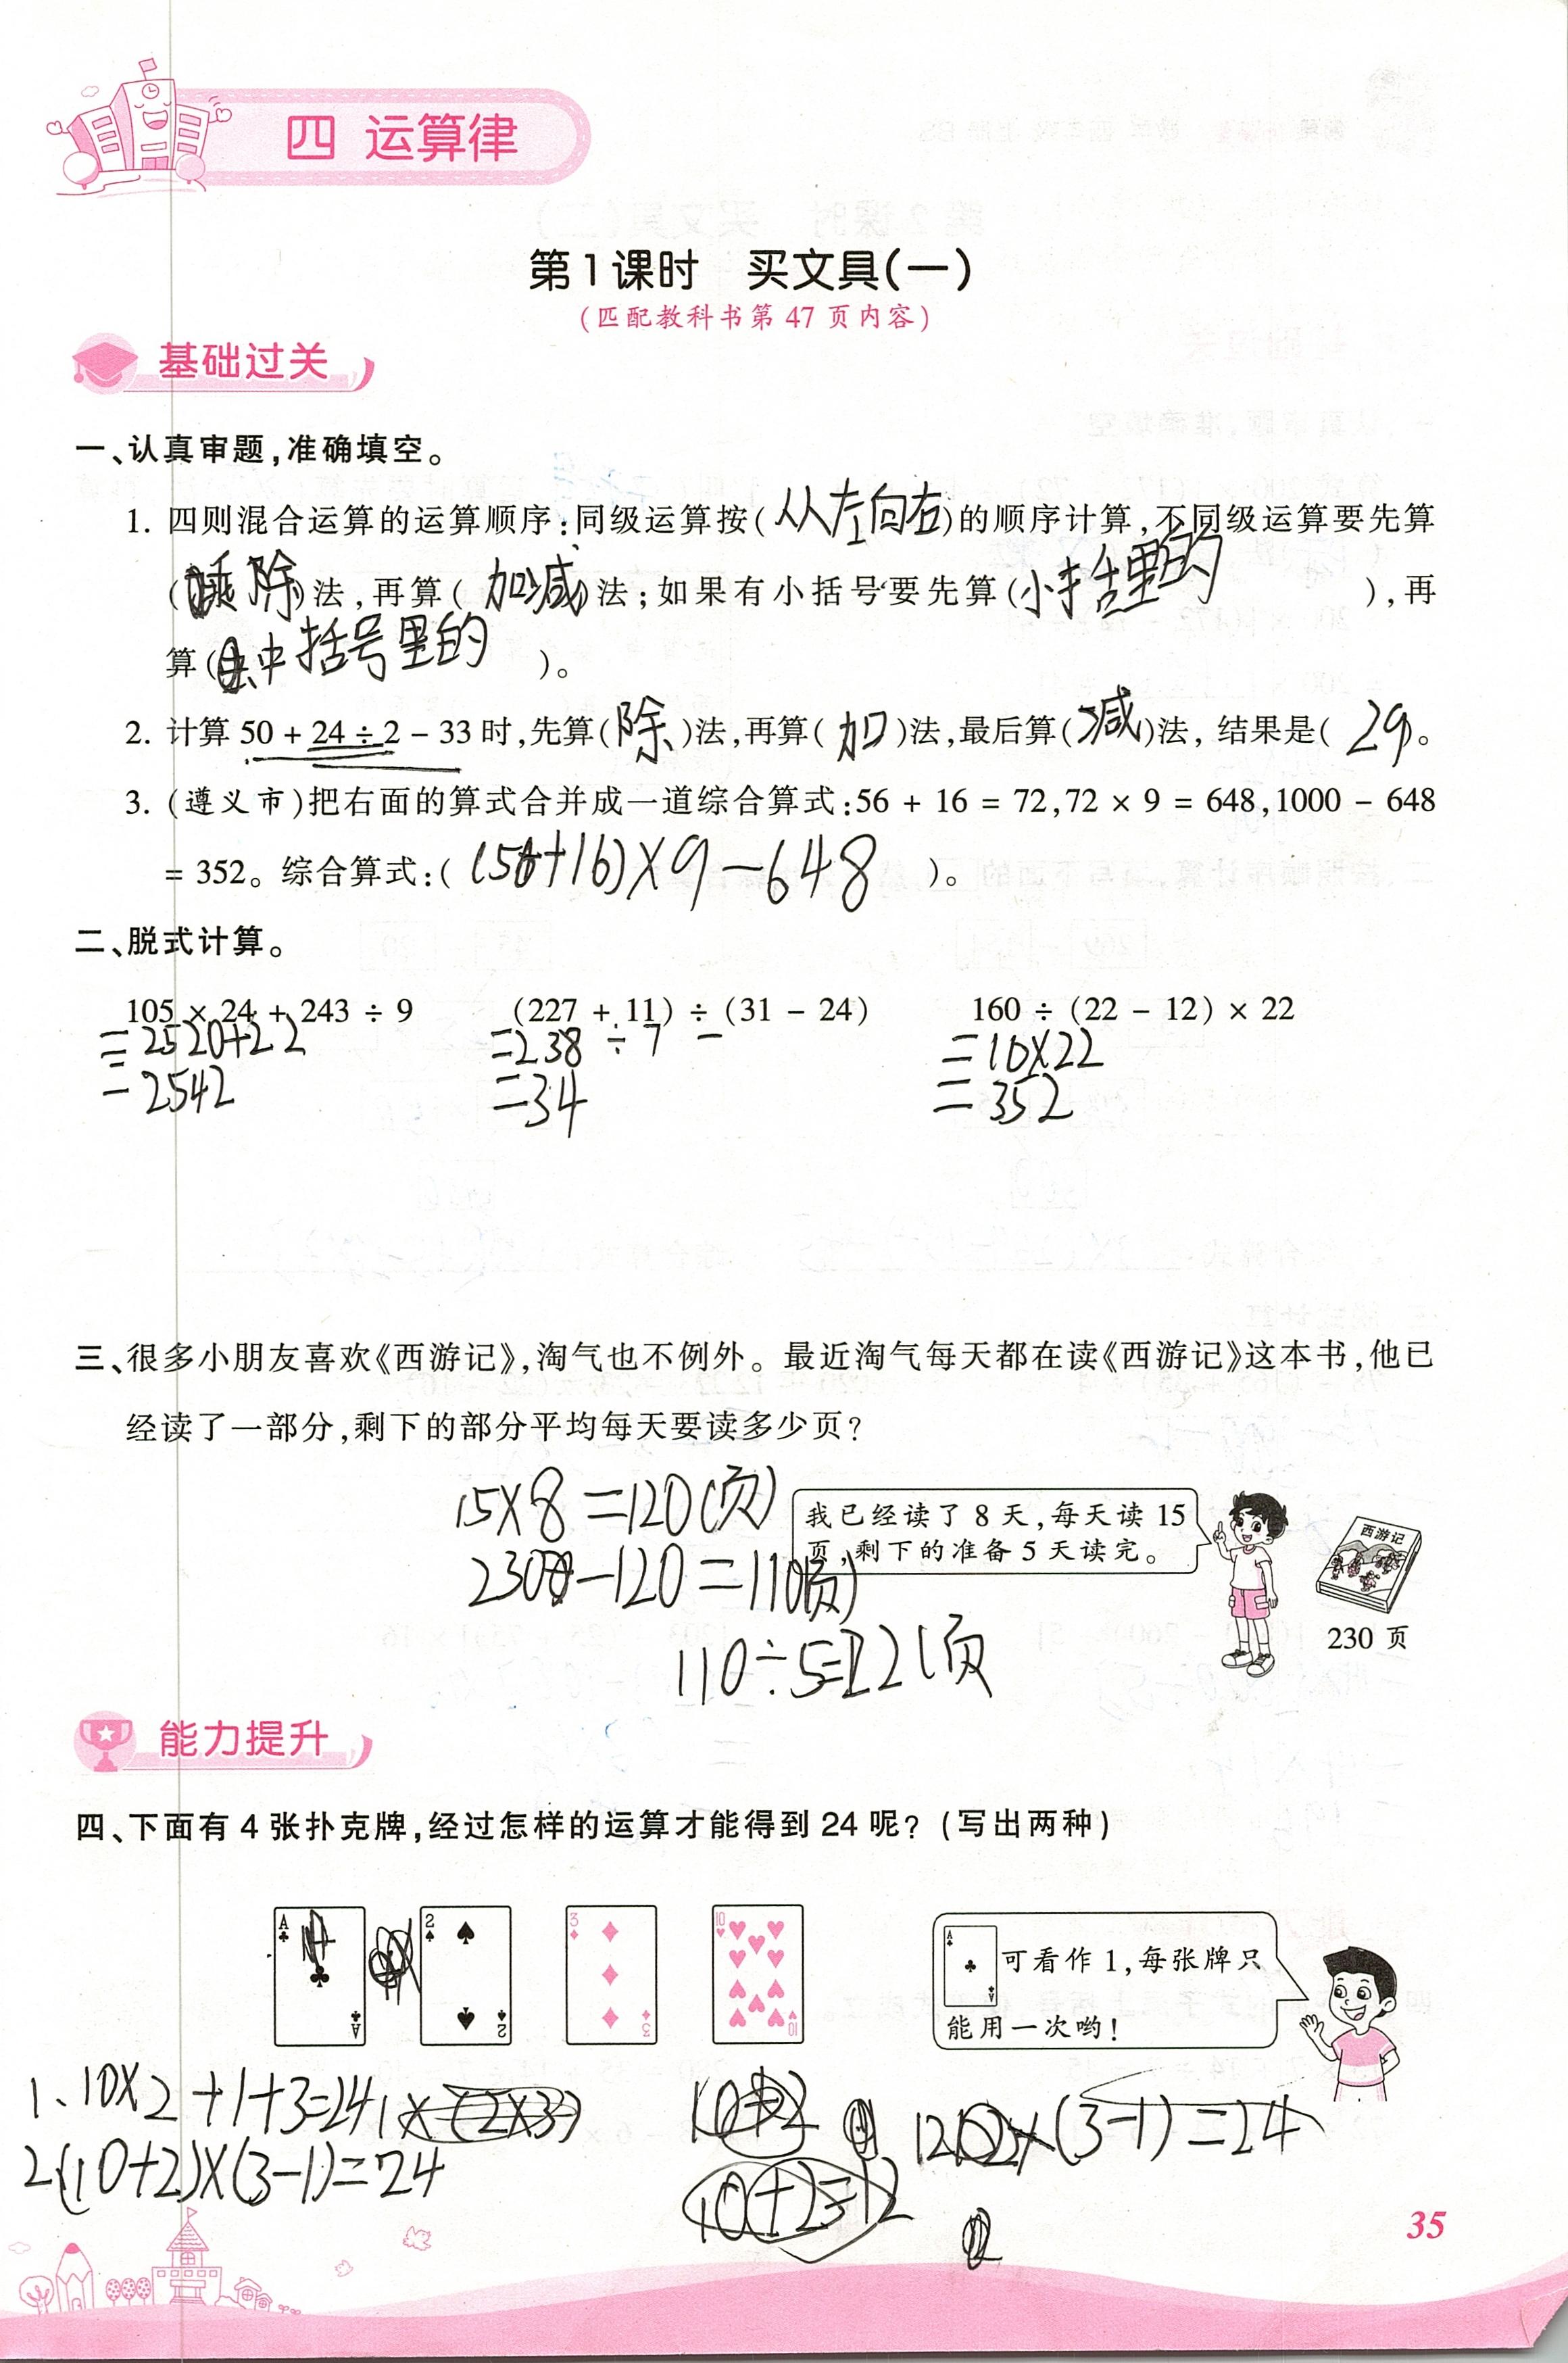 四 运算律
第1课时 买文具(一)
(匹配教科书第47页内容)
基础过关
一、认真审题,准确填空。
1. 四则混合运算的运算顺序:同级运算按(从左向右)的顺序计算,不同级运算要先算
(乘除)法,再算(加减)法;如果有小括号要先算(小括号里的),再
算(中括号里的)。
2. 计算 50 + 24 ÷ 2 - 33 时,先算(除)法,再算(加)法,最后算(减)法, 结果是(29)。
3. (遵义市)把右面的算式合并成一道综合算式:56 + 16 = 72,72 × 9 = 648,1000 - 648
= 352。综合算式:((56+16)×9-648)。
二、脱式计算。
105 × 24 + 243 ÷ 9 (227 + 11) ÷ (31 - 24) 160 ÷ (22 - 12) × 22
=2520+22 =238÷7 =16×22
=2542 =34 =352
三、很多小朋友喜欢《西游记》,淘气也不例外。最近淘气每天都在读《西游记》这本书,他已
经读了一部分,剩下的部分平均每天要读多少页?
15×8=120(页)
我已经读了 8 天,每天读 15
页,剩下的准备 5 天读完。
西游记
230 页
230-120=110(页)
110÷5=22(页
能力提升
四、下面有 4 张扑克牌,经过怎样的运算才能得到 24 呢?(写出两种)
A A 2 2 3 3 10 10
A A 可看作 1,每张牌只
能用一次哟!
1、10×2+1+3=24
2(10+2)×(3-1)=24
10+2=12
(3-1)=24
35